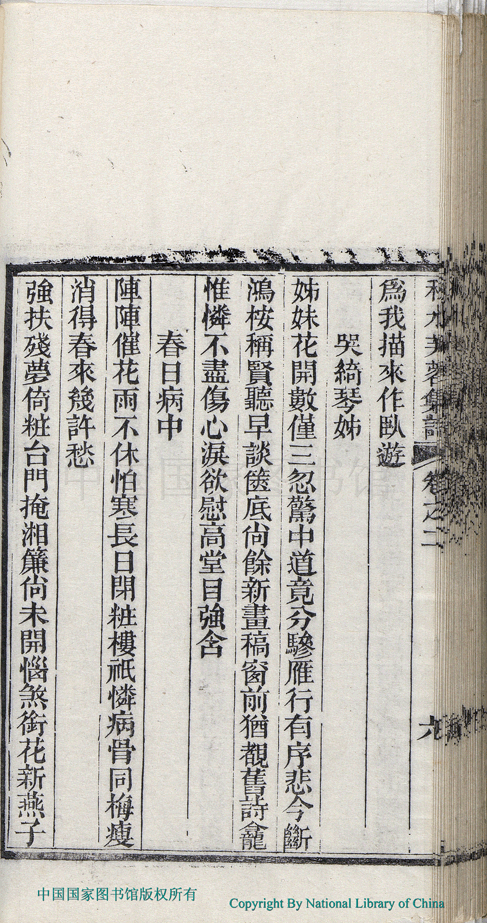 秋水芙蓉集詩 卷之二 九
為我描來作臥遊
哭綺琴姊
姊妹花開數僅三忽驚中道竟分驂雁行有序悲今斷
鴻桉稱賢聽早談篋底尙餘新畫稿窗前猶覩舊詩龕
惟憐不盡傷心淚欲慰高堂目強含
春日病中
陣陣催花雨不休怕寒長日閉粧樓祇憐病骨同梅瘦
消得春來幾許愁
強扶殘夢倚粧台門掩湘簾尙未開惱煞銜花新燕子
中国国家图书馆
中国国家图书馆版权所有
Copyright By National Library of China